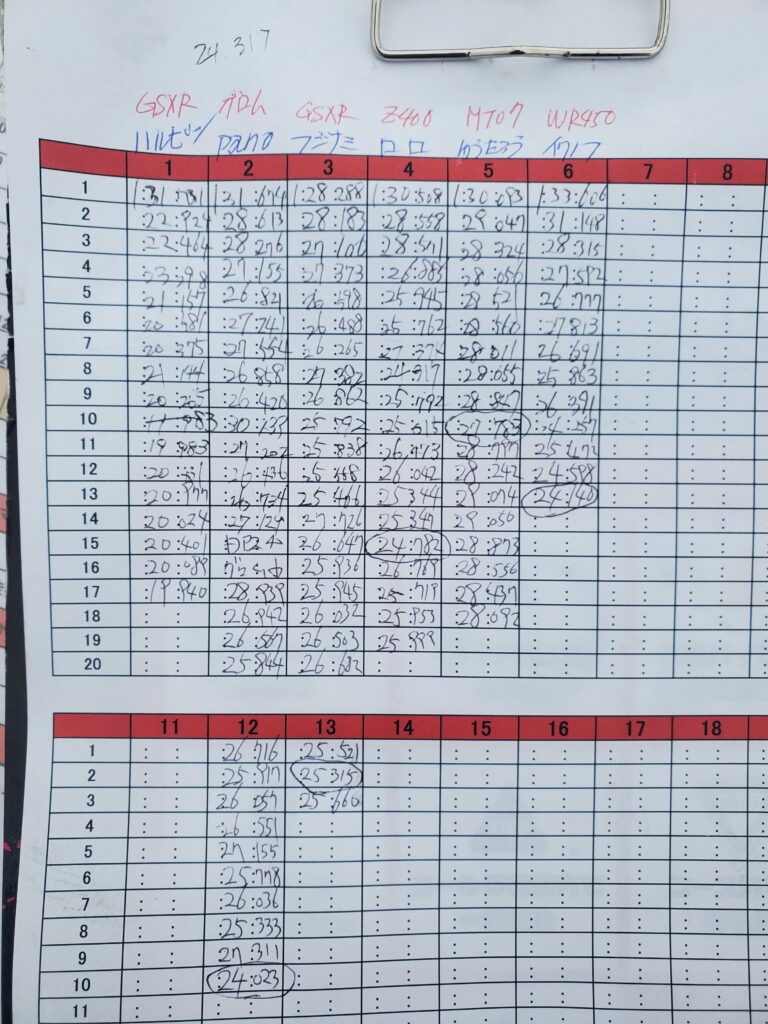 24.317
GSXR グロム GSXR Z400 MT07 WR450
ハルピン pano フジナミ ロロ ゆうたろう
1 2 3 4 5 6 7 8
1 1:31:731 1:31:674 1:28:288 1:30:508 1:30:093 1:33:606 : : : :
2 22:924 28:613 28:183 :28:558 29:047 :31:148 : : : :
3 22:464 28:276 27:106 28:571 :28:324 28:315 : : : :
4 23:398 27:155 :27:373 :26:885 :28:056 :27:592 : : : :
5 21:157 26:821 :26:598 :25:945 :28:521 26:777 : : : :
6 :20:581 :27:741 :26:488 :25:762 :28:560 :27:813 : : : :
7 :20:375 :27:554 :26:265 :27:374 28:011 26:691 : : : :
8 21:144 :26:858 :27:382 :24:317 :28:055 25:863 : : : :
9 :20:265 :26:420 26:862 :25:792 :28:847 :26:391 : : : :
10 :30:133 25:592 :25:615 :27:783 :24:257 : : : :
11 :19:983 :27:202 :25:838 :26:713 28:777 25:472 : : : :
12 :20:331 :26:436 :25:558 26:042 28:242 24:598 : : : :
13 :20:977 :26:724 25:466 25:344 :29:074 24:140 : : : :
14 20:024 :27:124 27:726 25:347 29:050 : : : : : :
15 20:401 :26:647 :24:782 28:873 : : : : : :
16 20:089 25:936 :26:769 :28:536 : : : : : :
17 :19:940 :28:939 :25:945 :25:719 28:437 : : : : : :
18 : : :26:942 26:032 :25:953 28:092 : : : : : :
19 : : :26:567 26:503 25:999 : : : : : : : :
20 : : 25:844 26:682 : : : : : : : : : :
11 12 13 14 15 16 17 18
1 : : :26:716 25:521 : : : : : : : : : :
2 : : :25:977 25:315 : : : : : : : : : :
3 : : 26:057 25:660 : : : : : : : : : :
4 : : :26:551 : : : : : : : : : : : :
5 : : 27:155 : : : : : : : : : : : :
6 : : :25:778 : : : : : : : : : : : :
7 : : :26:036 : : : : : : : : : : : :
8 : : :25:333 : : : : : : : : : : : :
9 : : :27:311 : : : : : : : : : : : :
10 : : :24:023 : : : : : : : : : : : :
11 : : : : : : : : : : : : : : : :